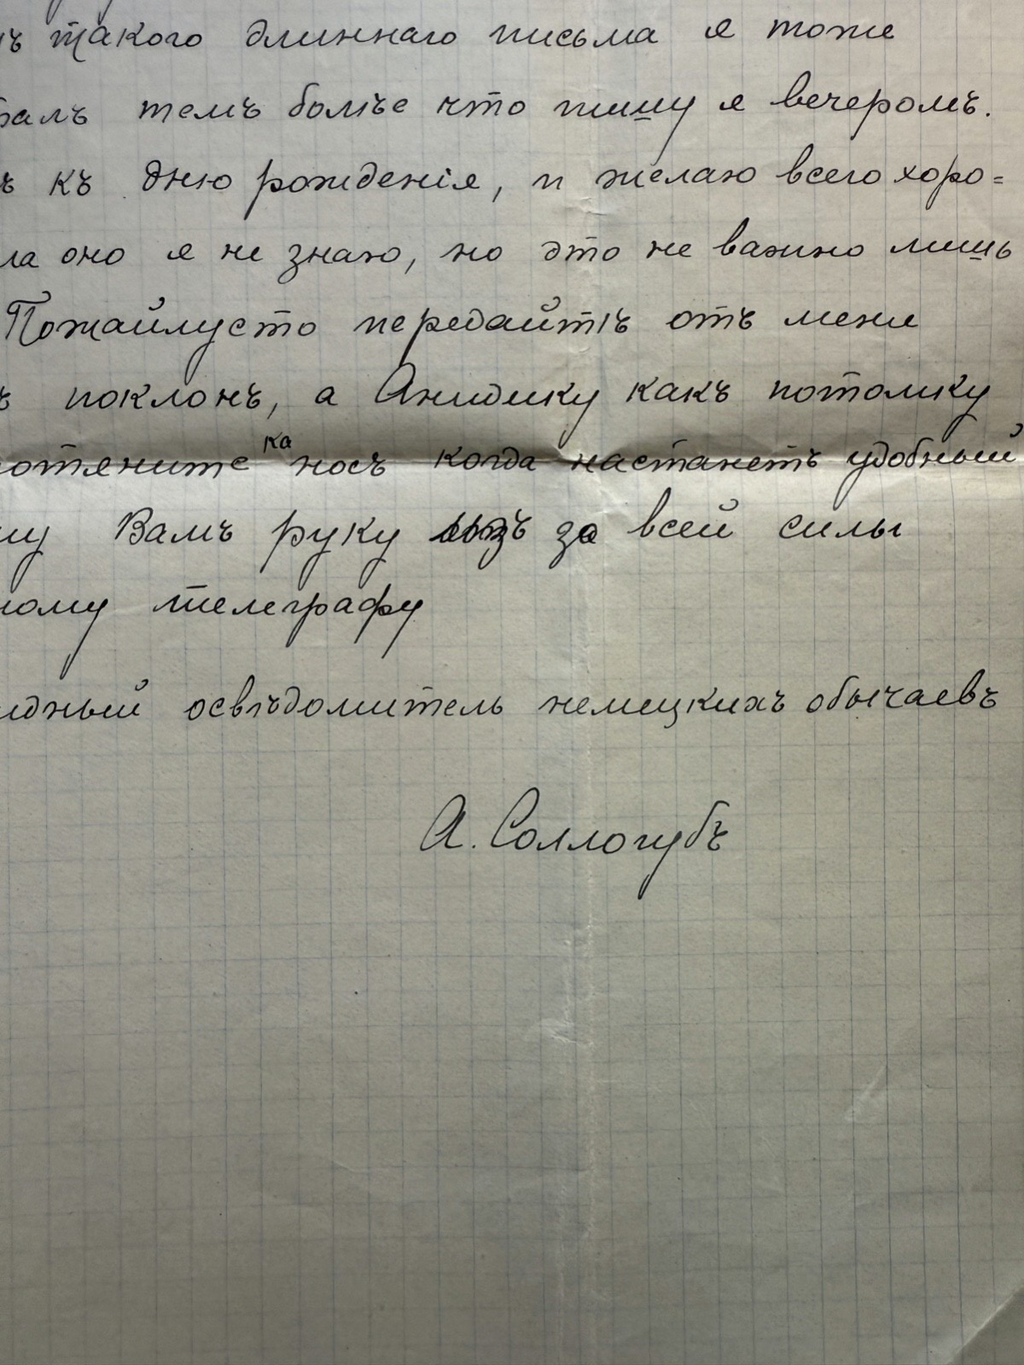 такого длиннаго письма я тоже
темъ болѣе что пишу я вечеромъ.
къ дню рожденія, и желаю всего хоро=
оно я не знаю, но это не важно лишь
Пожайлусто передайтѣ отъ меня
поклонъ, а как потомку
ка
носъ когда настанетъ удобный
Вамъ руку за всей силы
телеграфу
освѣдомитель немецкихъ обычаевъ
А. Соллогубъ